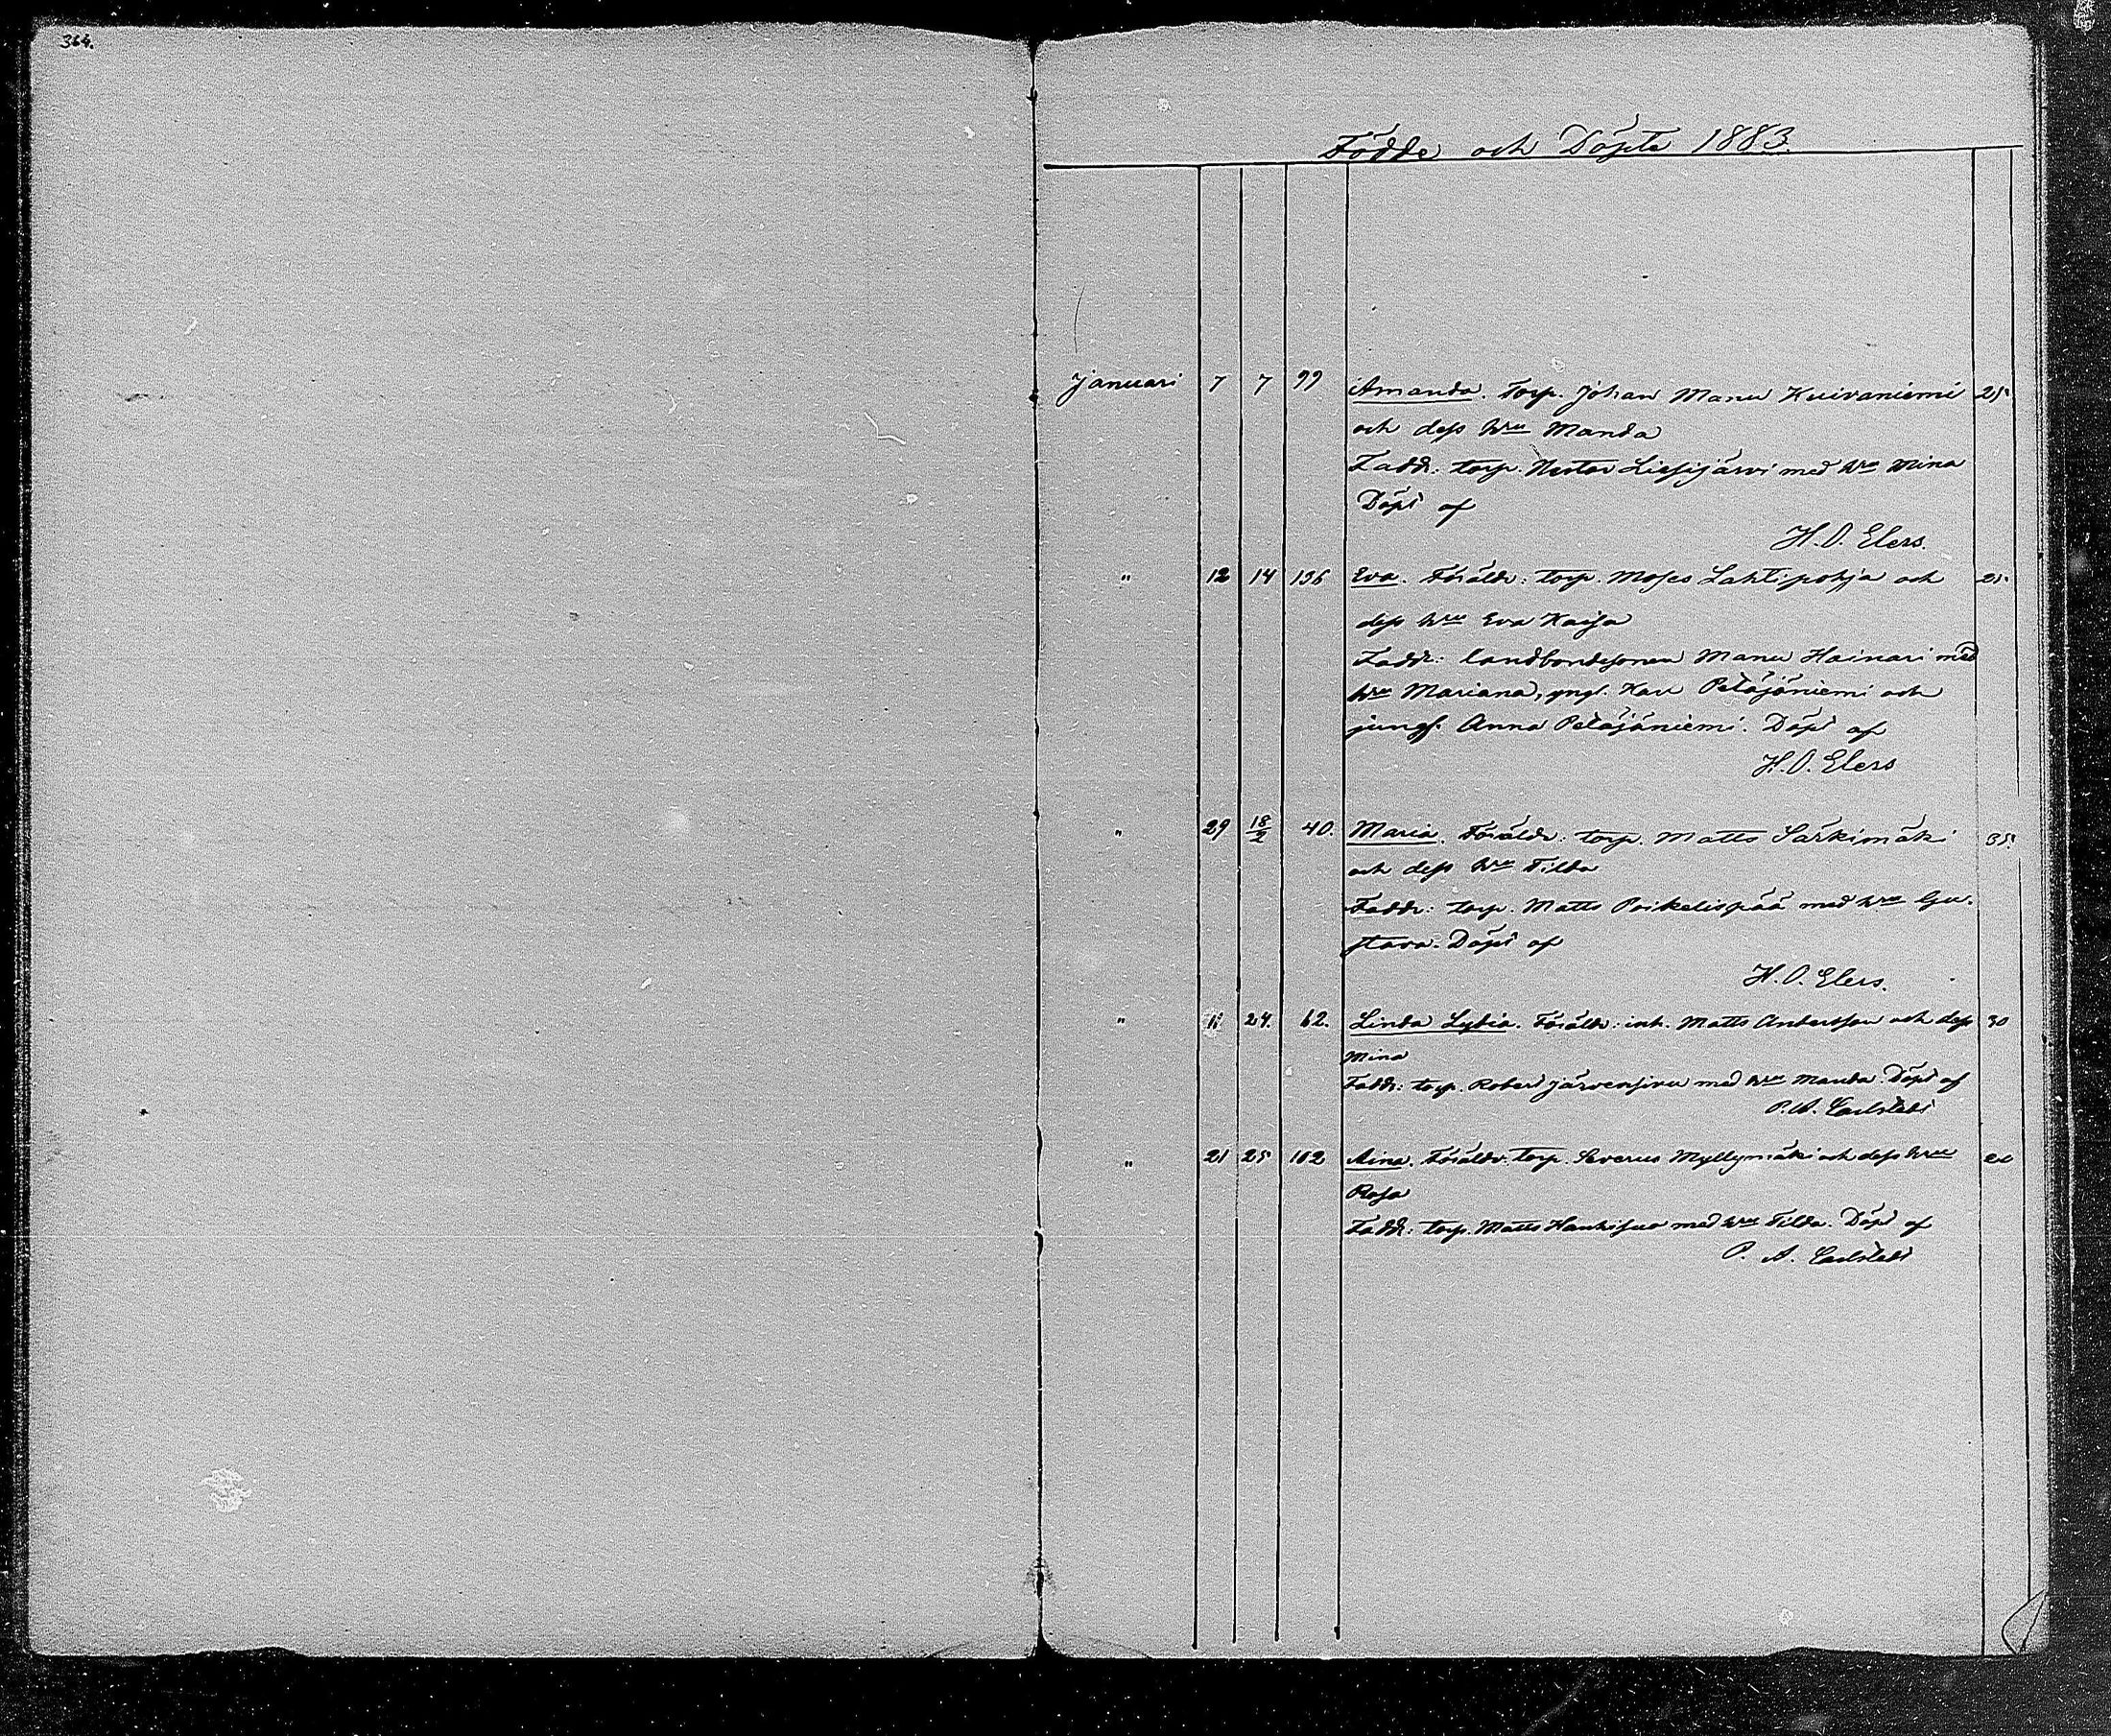 364.
Födde och Döpte 1883.
Januari 7 7 99 Amanda. Torp. Johan Manu Kuivaniemi 25
och dess hru Manda
Fadd: torp. Nestor Liesijärvi med hru Mina
Döpt af
H. O. Elers.
" 12 14 136 Eva. Föräldr: torp. Moses Lahtipohja och 25
dess hru Eva Kaisa
Fadd: landbondesonen Manu Hainari med
hru Mariana, yngl. Karl Petäjäniemi och
jungf. Anna Petäjäniemi. Döpt af
H. O. Elers
" 29 18/2 40. Maria. Föräldr: torp. Matts Särkimäki 35.
och dess hru Tilda
Faddr: torp. Matts Poikelispää med hru Gu-
stava. Döpt af
H. O. Elers.
" 11 24. 62. Linda Lydia. Föräldr: inh. Matts Andersson och dess 30
Mina
Faddr: torp. Robert Järvensivu med hru Manda. Döpt af
P. A. Carlstedt
" 21 25 102 Aina. Föräldr. torp. Severus Myllymäki och dess hru
Rosa
Fadd: torp. Matts Hankisuo med hru Tilda. Döpt af
P. A. Carlstedt